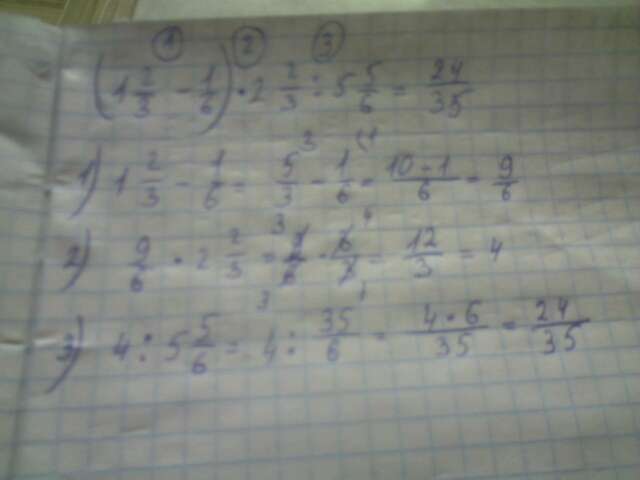 1 2 3
(1 2/3 - 1/6) · 2 2/3 : 5 5/6 = 24/35
1) 1 2/3 - 1/6 = 5/3 - 1/6 = 10-1/6 = 9/6
2) 9/6 · 2 2/3 = 9/6 · 8/3 = 12/3 = 4
3) 4 : 5 5/6 = 4 : 35/6 = 4·6/35 = 24/35